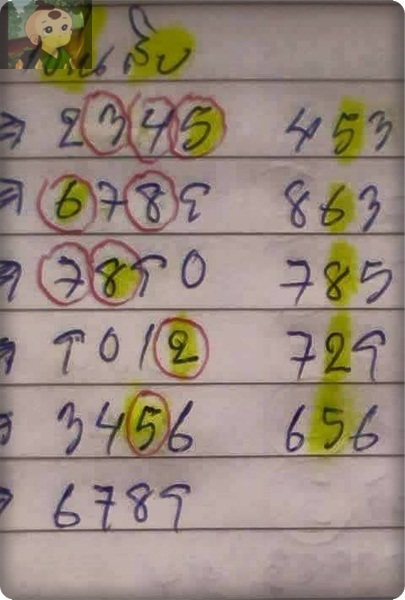 สิบ
2345 453
6789 863
7890 785
9012 729
3456 656
6789